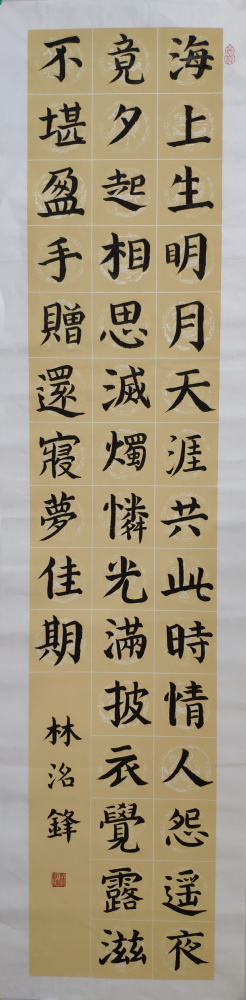 海上生明月天涯共此時情人怨遥夜
竟夕起相思滅燭憐光滿披衣覺露滋
不堪盈手贈還寢夢佳期
林洺鋒